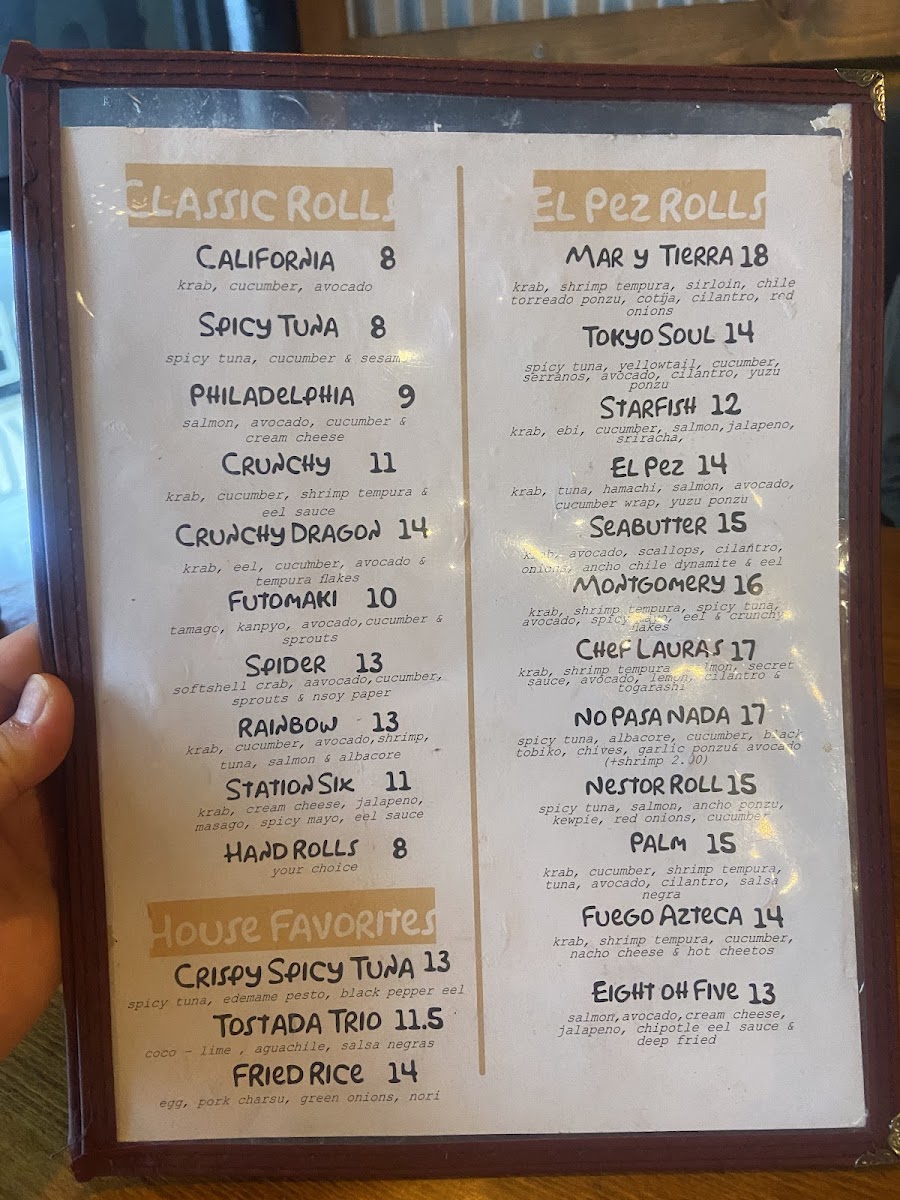 CLASSIC ROLLS
CALIFORNIA 8
krab, cucumber, avocado
SPICY TUNA 8
spicy tuna, cucumber & sesame
PHILADELPHIA 9
salmon, avocado, cucumber &
cream cheese
CRUNCHY 11
krab, cucumber, shrimp tempura &
eel sauce
CRUNCHY DRAGON 14
krab, eel, cucumber, avocado &
tempura flakes
FUTOMAKI 10
tamago, kanpyo, avocado,cucumber &
sprouts
SPIDER 13
softshell crab, aavocado,cucumber,
sprouts & nsoy paper
RAINBOW 13
krab, cucumber, avocado,shrimp,
tuna, salmon & albacore
STATION SIX 11
krab, cream cheese, jalapeno,
masago, spicy mayo, eel sauce
HAND ROLLS 8
your choice
HOUSE FAVORITES
CRISPY SPICY TUNA 13
spicy tuna, edemame pesto, black pepper eel
TOSTADA TRIO 11.5
coco - lime , aguachile, salsa negras
FRIED RICE 14
egg, pork charsu, green onions, nori
EL PEZ ROLLS
MAR Y TIERRA 18
krab, shrimp tempura, sirloin, chile
torreado ponzu, cotija, cilantro, red
onions
TOKYO SOUL 14
spicy tuna, yellowtail, cucumber,
serranos, avocado, cilantro, yuzu
ponzu
STARFISH 12
krab, ebi, cucumber, salmon,jalapeno,
sriracha,
EL PEZ 14
krab, tuna, hamachi, salmon, avocado,
cucumber wrap, yuzu ponzu
SEABUTTER 15
krab, avocado, scallops, cilantro,
onions, ancho chile dynamite & eel
MONTGOMERY 16
krab, shrimp tempura, spicy tuna,
avocado, spicy mayo, eel & crunchy
flakes
CHEF LAURA'S 17
krab, shrimp tempura, salmon, secret
sauce, avocado, lemon, cilantro &
togarashi
NO PASA NADA 17
spicy tuna, albacore, cucumber, black
tobiko, chives, garlic ponzu& avocado
(+shrimp 2.00)
NESTOR ROLL 15
spicy tuna, salmon, ancho ponzu,
kewpie, red onions, cucumber
PALM 15
krab, cucumber, shrimp tempura,
tuna, avocado, cilantro, salsa
negra
FUEGO AZTECA 14
krab, shrimp tempura, cucumber,
nacho cheese & hot cheetos
EIGHT OH FIVE 13
salmon,avocado,cream cheese,
jalapeno, chipotle eel sauce &
deep fried